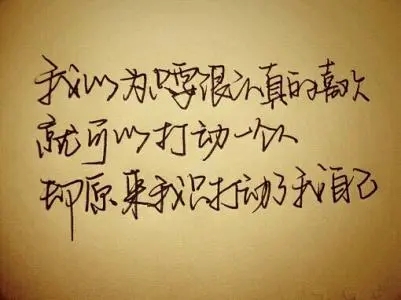 我以为只要很认真的喜欢
就可以打动一个人
却原来我只打动了我自己